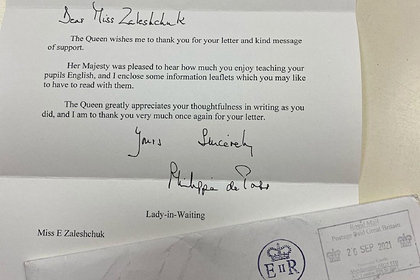 Dear Miss Zaleshchuk
The Queen wishes me to thank you for your letter and kind message
of support.
Her Majesty was pleased to hear how much you enjoy teaching your
pupils English, and I enclose some information leaflets which you may like
to have to read with them.
The Queen greatly appreciates your thoughtfulness in writing as you
did, and I am to thank you very much once again for your letter.
Yours Sincerely
Philippa de
Lady-in-Waiting
Miss E Zaleshchuk
E II R
Royal Mail
Postage Paid Great Britain
20 SEP 2021